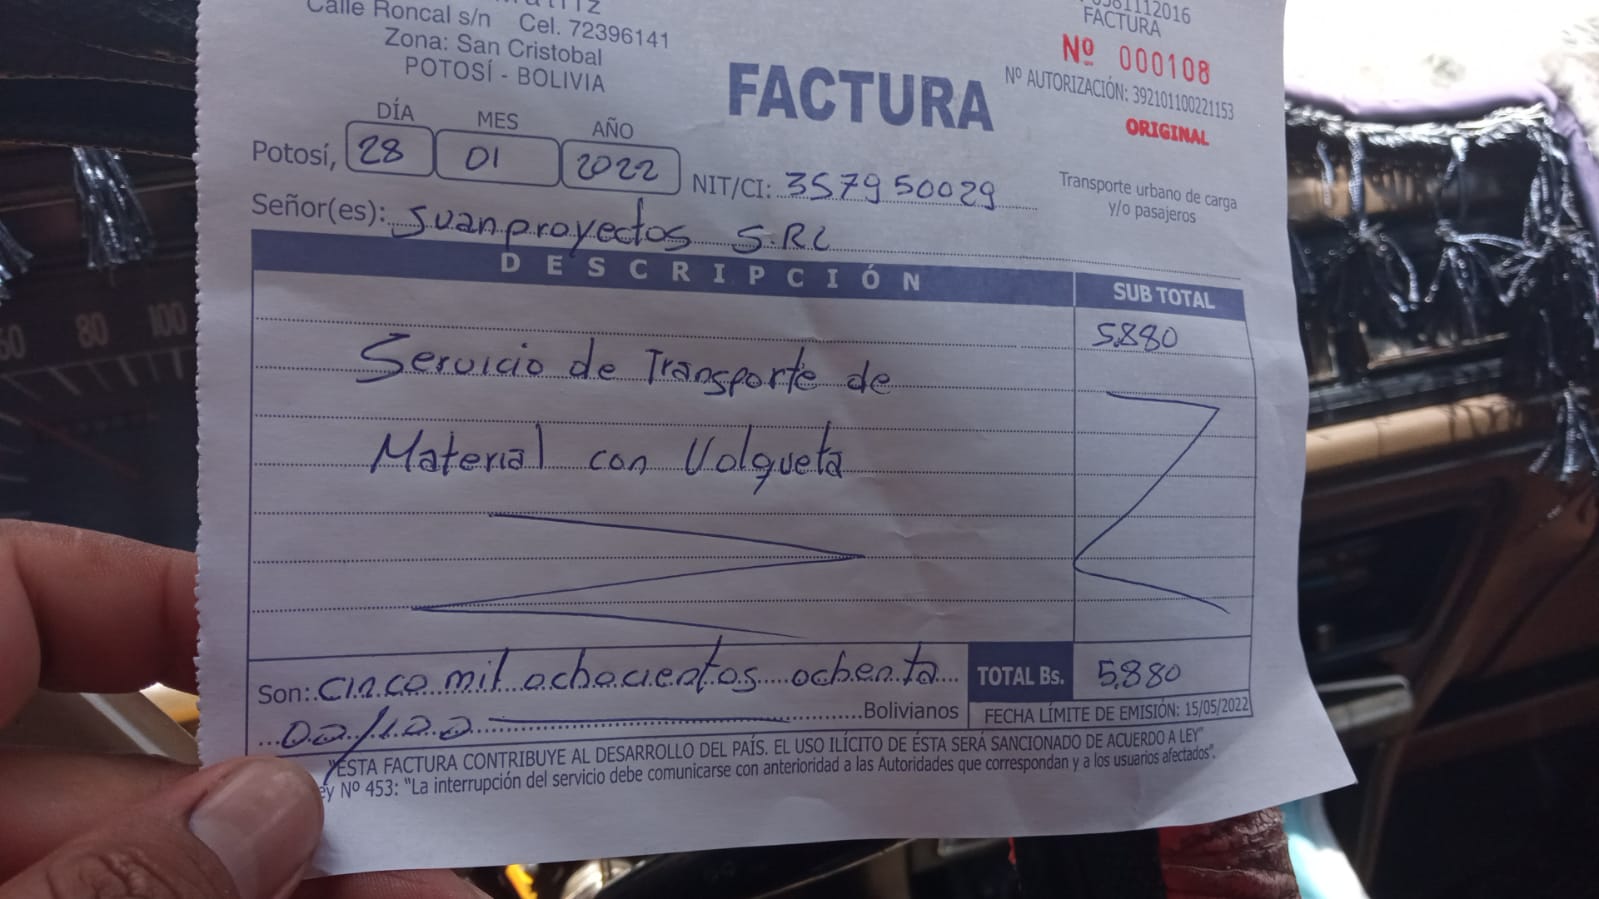 Calle Roncal s/n Cel. 72396141
Zona: San Cristobal
POTOSÍ - BOLIVIA
FACTURA
FACTURA
Nº 000108
Nº AUTORIZACIÓN: 392101100221153
ORIGINAL
DÍA MES AÑO
Potosí, 28 01 2022
NIT/CI: 357950029
Transporte urbano de carga
y/o pasajeros
Señor(es): Suanproyectos S.RL
DESCRIPCIÓN SUB TOTAL
5.880
Servicio de Transporte de
Material con Volqueta
Son: cinco mil ochocientos ochenta TOTAL Bs. 5.880
00/100 Bolivianos FECHA LÍMITE DE EMISIÓN: 15/05/2022
"ESTA FACTURA CONTRIBUYE AL DESARROLLO DEL PAÍS. EL USO ILÍCITO DE ÉSTA SERÁ SANCIONADO DE ACUERDO A LEY"
Nº 453: "La interrupción del servicio debe comunicarse con anterioridad a las Autoridades que correspondan y a los usuarios afectados".
80 100